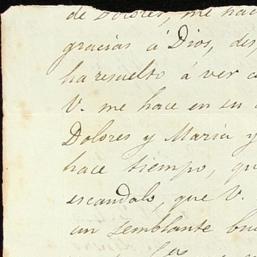 de Dolores, me hac
gracias á Dios, des
ha resuelto á ver
V. me hace en su
Dolores y María y
hace tiempo, qu
escandalo, que V.
un semblante bue